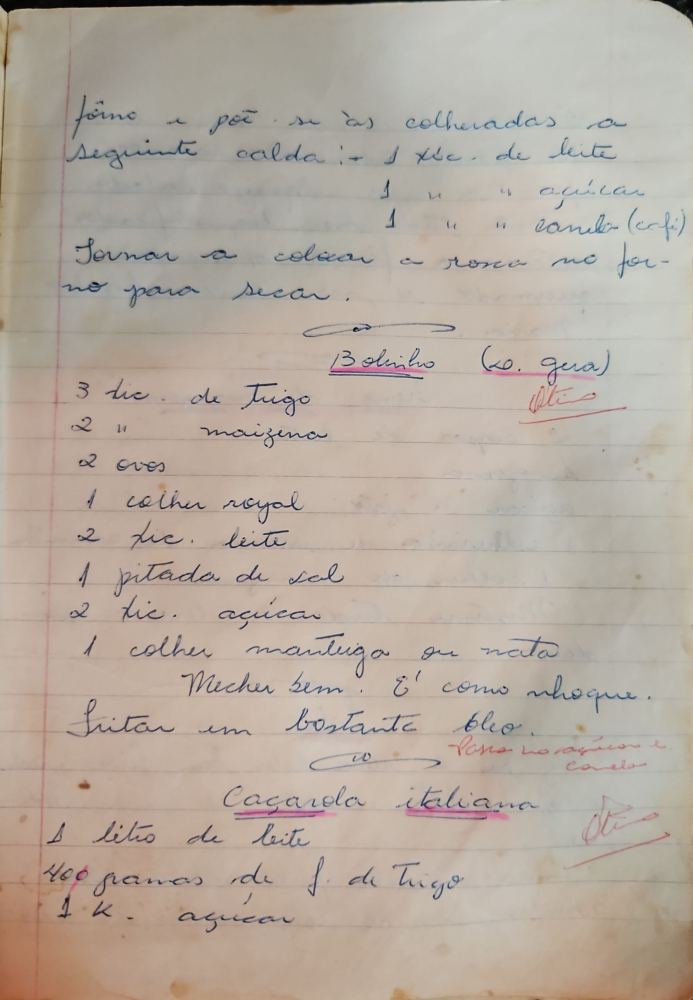 fôrno e põe se às colheradas a
seguinte calda:- 1 xíc. de leite
1 " " açúcar
1 " " canela (café)
Tornar a colocar a rosca no for-
no para secar.
Bolinho (D. gera)
Ótimo
3 xic. de trigo
2 " maizena
2 ovos
1 colher royal
2 xic. leite
1 pitada de sal
2 xic. açúcar
1 colher manteiga ou nata
Mecher bem. É como nhoque.
Fritar em bastante óleo.
Passa no açúcar e
canela
Caçarola italiana
Ótimo
1 litro de leite
400 gramas de f. de trigo
1 K. açúcar